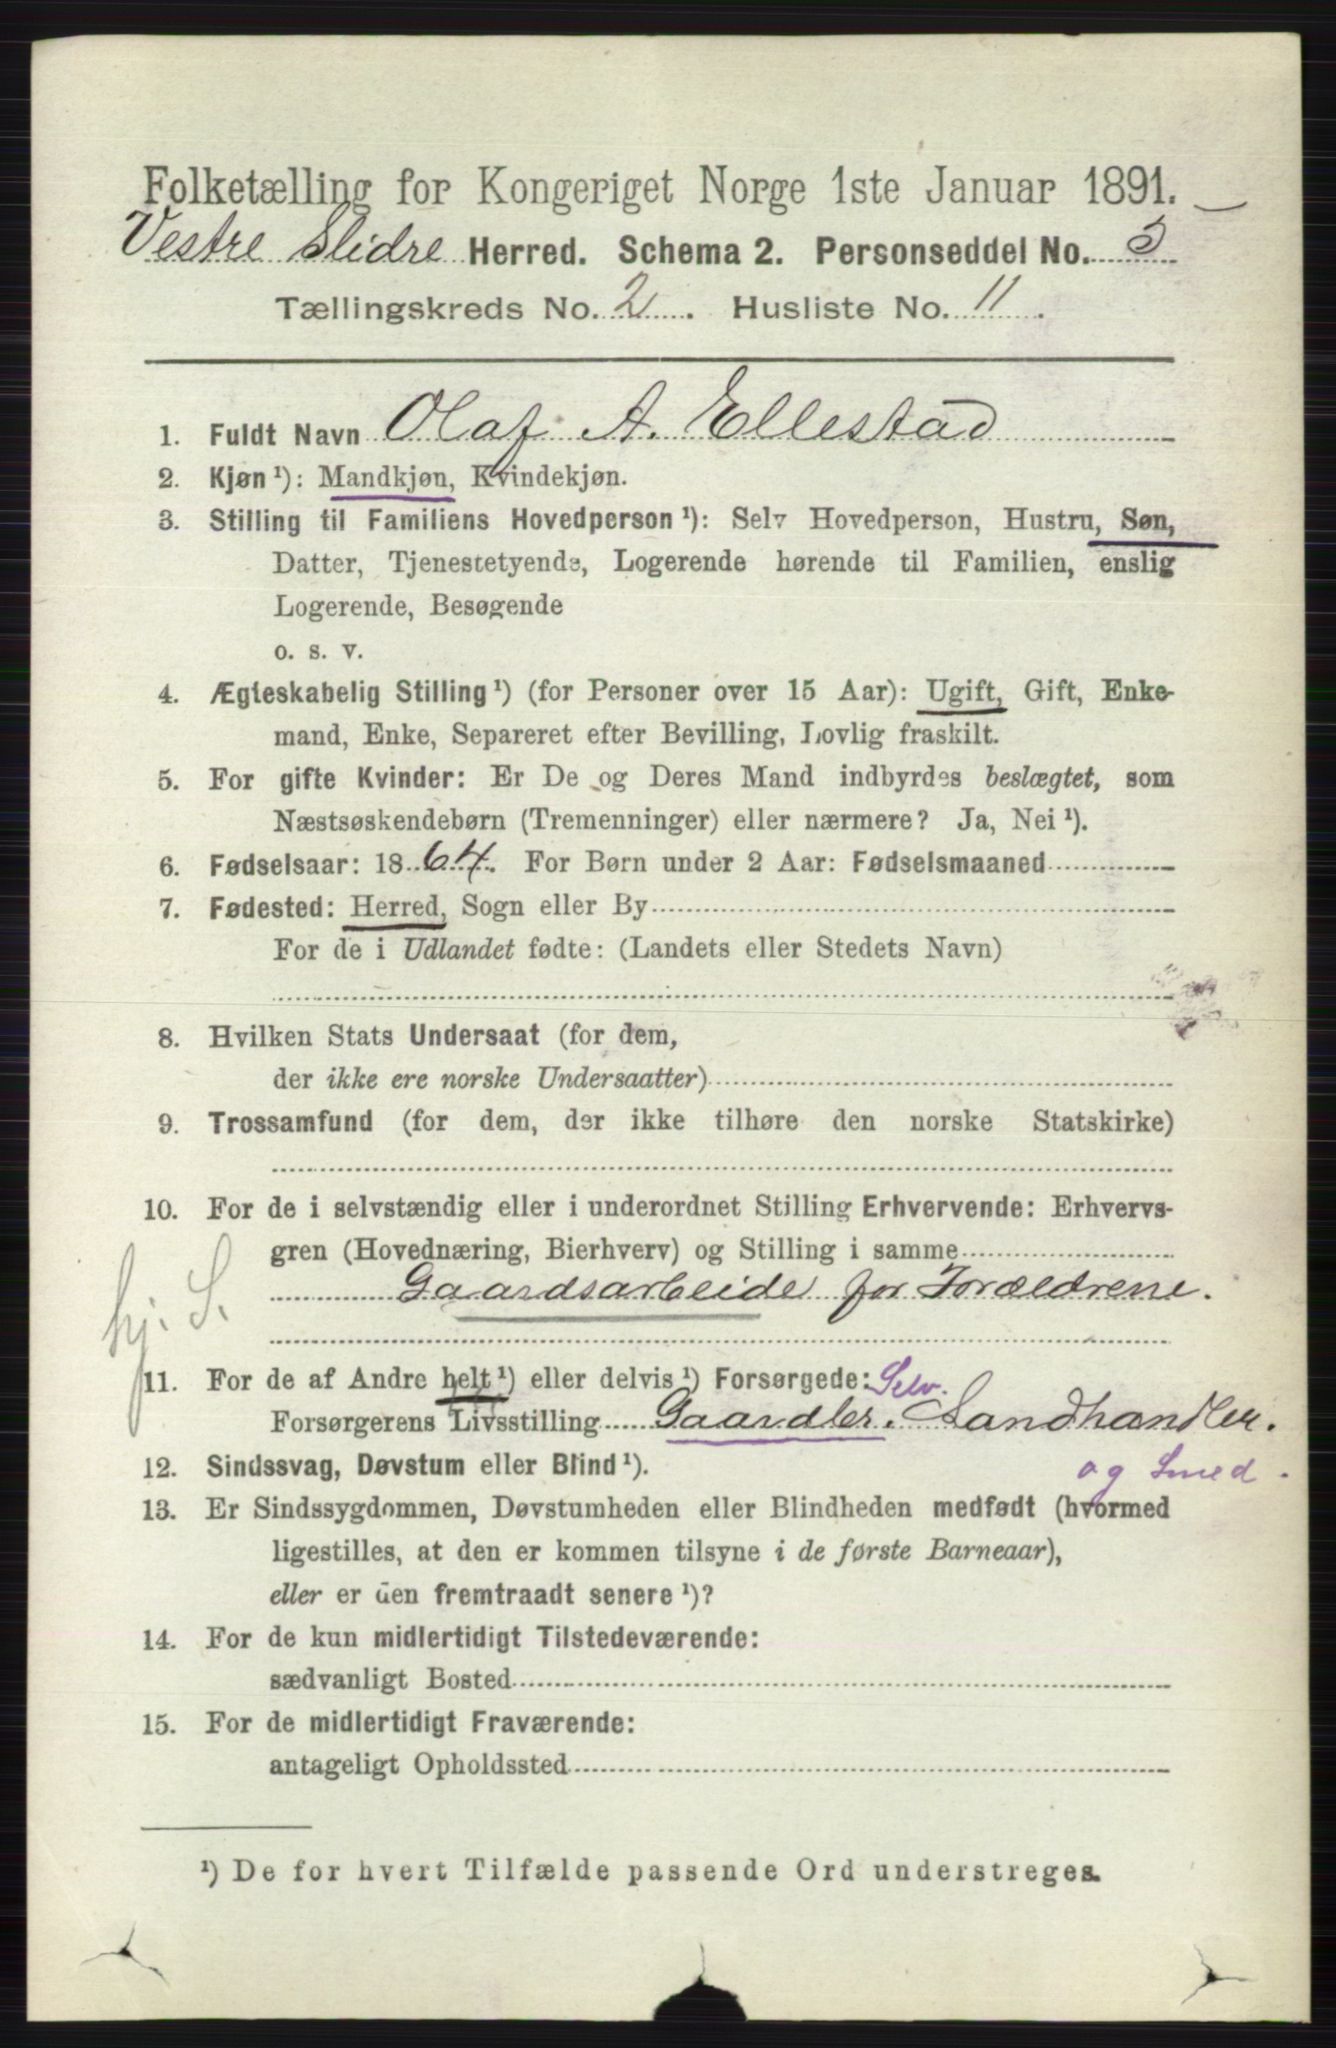 Folketælling for Kongeriget Norge 1ste Januar 1891.
Vestre Slidre Herred. Schema 2. Personseddel No. 5
Tællingskreds No. 2. Husliste No. 11.
1. Fuldt Navn Olaf A. Ellestad
2. Kjøn ¹): Mandkjøn, Kvindekjøn.
3. Stilling til Familiens Hovedperson ¹): Selv Hovedperson, Hustru, Søn,
Datter, Tjenestetyende, Logerende hørende til Familien, enslig
Logerende, Besøgende
o. s. v.
4. Ægteskabelig Stilling ¹) (for Personer over 15 Aar): Ugift, Gift, Enke-
mand, Enke, Separeret efter Bevilling, Lovlig fraskilt.
5. For gifte Kvinder: Er De og Deres Mand indbyrdes beslægtet, som
Næstsøskendebørn (Tremenninger) eller nærmere? Ja, Nei ¹).
6. Fødselsaar: 1864. For Børn under 2 Aar: Fødselsmaaned
7. Fødested: Herred, Sogn eller By
For de i Udlandet fødte: (Landets eller Stedets Navn)
8. Hvilken Stats Undersaat (for dem,
der ikke ere norske Undersaatter)
9. Trossamfund (for dem, der ikke tilhøre den norske Statskirke)
10. For de i selvstændig eller i underordnet Stilling Erhvervende: Erhvervs-
gren (Hovednæring, Bierhverv) og Stilling i samme
hj. S. Gaardsarbeide for Forældrene.
11. For de af Andre helt ¹) eller delvis ¹) Forsørgede: Selv.
Forsørgerens Livsstilling Gaardbr. Landhandler.
12. Sindssvag, Døvstum eller Blind ¹). og Smed.
13. Er Sindssygdommen, Døvstumheden eller Blindheden medfødt (hvormed
ligestilles, at den er kommen tilsyne i de første Barneaar),
eller er den fremtraadt senere ¹)?
14. For de kun midlertidigt Tilstedeværende:
sædvanligt Bosted
15. For de midlertidigt Fraværende:
antageligt Opholdssted
¹) De for hvert Tilfælde passende Ord understreges.